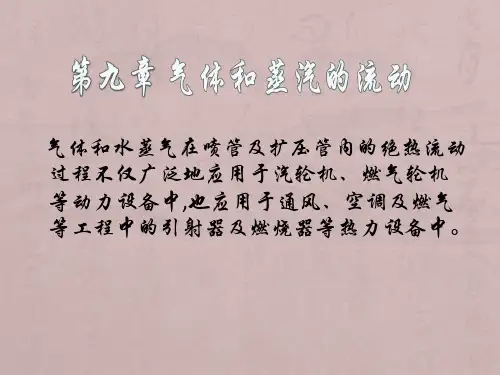 第九章 气体和蒸汽的流动
气体和水蒸气在喷管及扩压管内的绝热流动
过程不仅广泛地应用于汽轮机、燃气轮机
等动力设备中,也应用于通风、空调及燃气
等工程中的引射器及燃烧器等热力设备中。